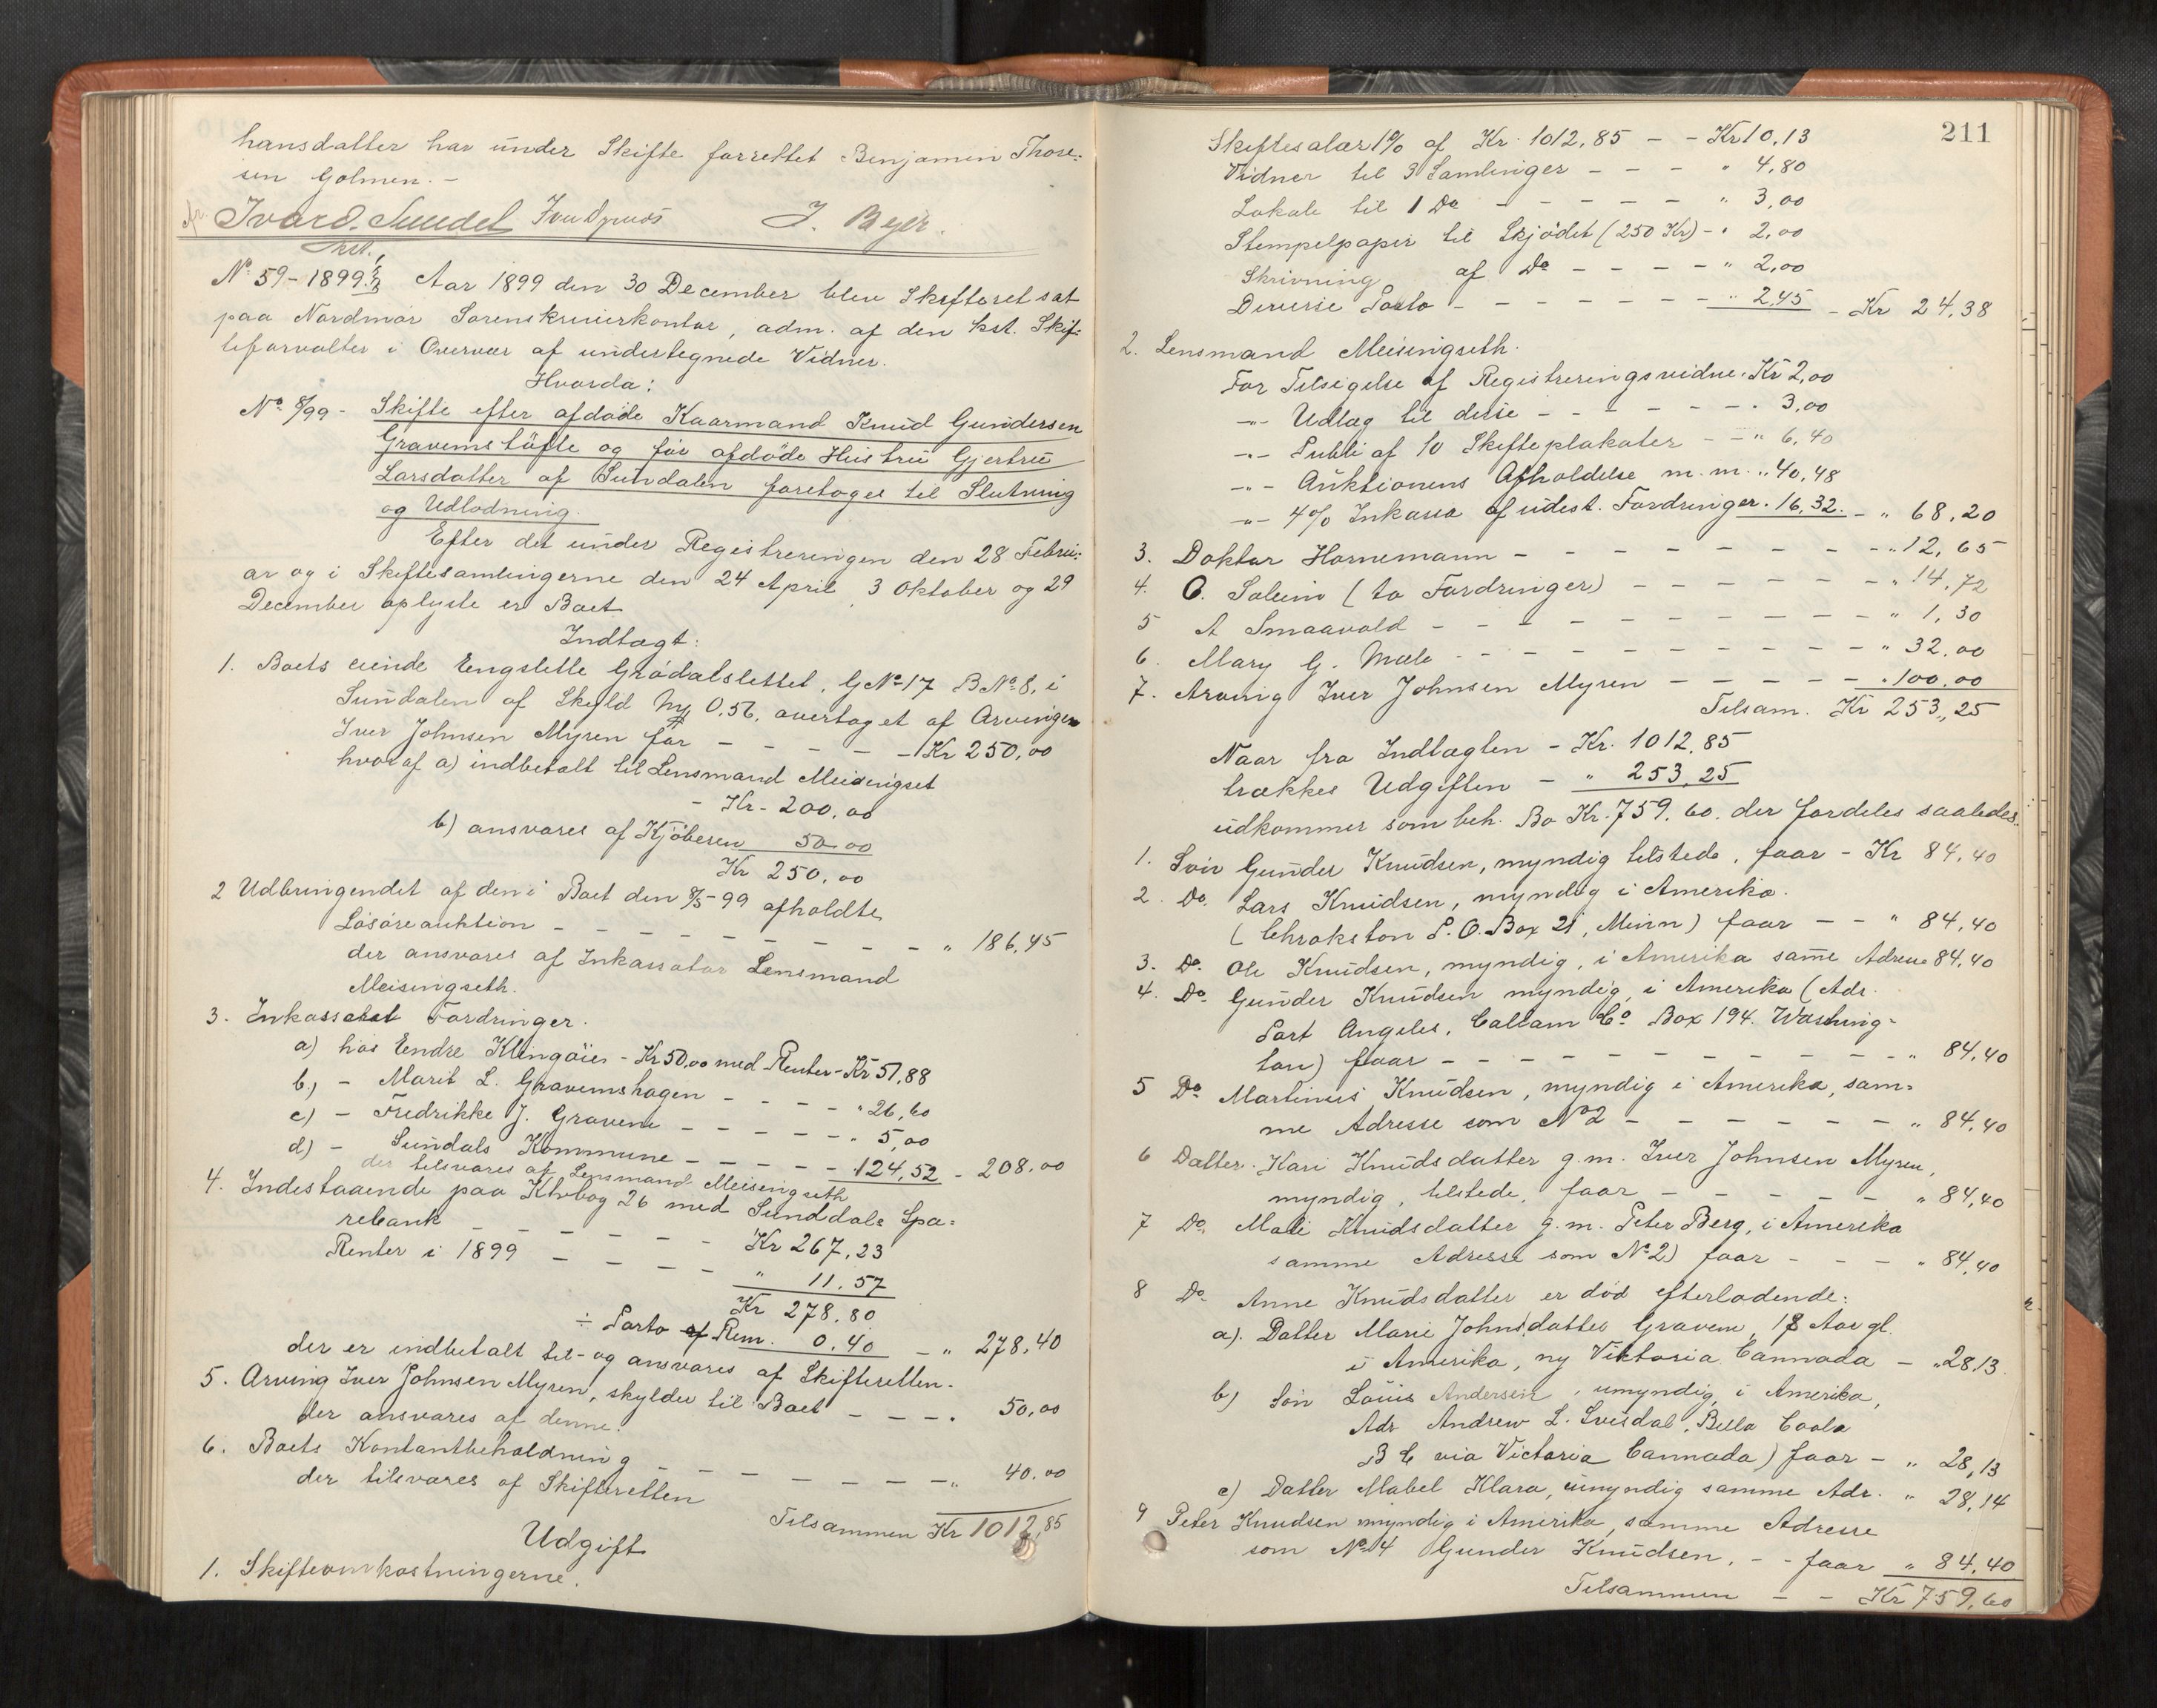 hansdatter har under Skifte forrettet Benjamin Thore-
sen Golmen. –
Ivar O. Sundet Iver Opnøs J. Beyer.
kst.
No 59 - 1899. Aar 1899 den 30 December blev Skifteret sat
paa Nordmør Sorenskriverkontor, adm. af den kst. Skif-
teforvalter i Overvær af undertegnede Vidner.
Hvorda:
No 8/99 - Skifte efter afdøde Kaarmand Knud Gundersen
Gravemsløfte og før afdøde Hustru Gjertru
Larsdatter af Sundalen foretoges til Slutning
og Udlodning.
Efter det under Registreringen den 28 Febru-
ar og i Skiftesamlingerne den 24 April, 3 Oktober og 29
December oplyste er Boet
Indtægt:
1. Boets eiende Engslette Grødalslettet, GNo 17 BNo 8, i
Sundalen af Skyld My 0.56, overtaget af Arvingen
Iver Johnsen Myren for – – – – – Kr 250,00
hvoraf a) indbetalt til Lensmand Meisingset
– Kr. 200,00
b) ansvares af Kjøberen 50.00
Kr 250,00
2 Udbringendet af den i Boet den 8/5-99 afholdte
Løsøreauktion – – – – – – – – – " 186,45
der ansvares af Inkassator Lensmand
Meisingseth.
3. Inkasseret Fordringer.
a) hos Endre Klingøier - Kr 50,00 med Renter - Kr 51,88
b) – Marit L. Gravemshagen – – – – " 26,60
c) – Fredrikke J. Gravem – – – – – " 5,00
d) – Sundals Kommune – – – – – 124,52 – 208,00
der tilsvares af Lensmand Meisingseth
4. Indestaaende paa Khvbog 26 med Sunddals Spa-
rebank – – – – – – Kr 267,23
Renter i 1899 – – – – " 11.57
Kr 278,80
÷ Porto af Rem. 0.40 – " 278,40
der er indbetalt til - og ansvares af Skifteretten.
5. Arving Iver Johnsen Myren, skylder til Boet – – – . 50,00
der ansvares af denne.
6. Boets Kontantbeholdning – – – – – – – „ 40.00
der tilsvares af Skifteretten
Tilsammen Kr 1012,85
Udgift
1. Skifteomkostningerne.
211
Skiftesalær 1% af Kr. 1012,85 – – Kr 10,13
Vidner til 3 Samlinger – – – " 4,80
Lokale til 1 Do – – – – – " 3,00
Stempelpapir til Skjødet (250 Kr) – " 2,00
Skrivning af Do – – – – " 2,00
Diverse Porto – – – – – – – " 2,45 – Kr 24,38
2. Lensmand Meisingseth.
For Tilsigelse af Registreringsvidne. Kr 2,00
–„– Udlæg til disse – – – – – – . 3,00
–„– Publi af 10 Skifteplakater – – " 6,40
–„– Auktionens Afholdelse m. m. „ 40,48
–„– 4% Inkasso af udest. Fordringer. 16,32. – „ 68,20
3. Doktor Hornemann – – – – – – – – „ 12,65
4. O. Solem (to Fordringer) – – – – – – „ 14,72
5 A Smaavold – – – – – – – – – – " 1,30
6. Mary G. Mæle – – – – – – – – – „ 32.00
7. Arving Iver Johnsen Myren – – – – – „ 100.00
Tilsam. Kr 253,25
Naar fra Indtægten – Kr. 1012,85
trækkes Udgiften – „ 253,25
udkommer som beh. Bo Kr. 759.60. der fordeles saaledes.
1. Søn Gunder Knudsen, myndig tilstede, faar – Kr 84,40
2. Do. Lars Knudsen, myndig i Amerika.
(Chrokston P. O. Box 21, Minn) faar – – " 84,40
3. Do. Ole Knudsen, myndig, i Amerika same Adresse 84,40
4. Do. Gunder Knudsen myndig, i Amerika (Adr.
Port Angeles, Callam Co. Box 194. Washing-
ton) faar – – – – – – – – – – – „ 84,40
5 Do. Martinus Knudsen, myndig i Amerika, sam-
me Adresse som No 2 – – – – – – – „ 84,40
6 Datter. Kari Knudsdatter g.m. Iver Johnsen Myren,
myndig, tilstede, faar – – – – – „ 84,40
7 Do. Mali Knudsdatter g.m. Peter Berg, i Amerika
samme Adresse som No 2) faar – – – „ 84,40
8 Do. Anne Knudsdatter er død efterladende:
a). Datter Marie Johnsdatter Gravem, 18 Aar gl.
i Amerika, ny Viktoria Cannada – „ 28,13.
b) Søn Louis Andersen, umyndig, i Amerika,
Adr Andrew L. Svisdal, Bella Coola
B C via Victoria Cannada) faar – „ 28,13
c) Datter Mabel Klara, umyndig samme Adr. „ 28,14
9 Peter Knudsen myndig i Amerika, samme Adresse
som No. 4 Gunder Knudsen, – – faar „ 84,40
Tilsammen – – Kr 759,60